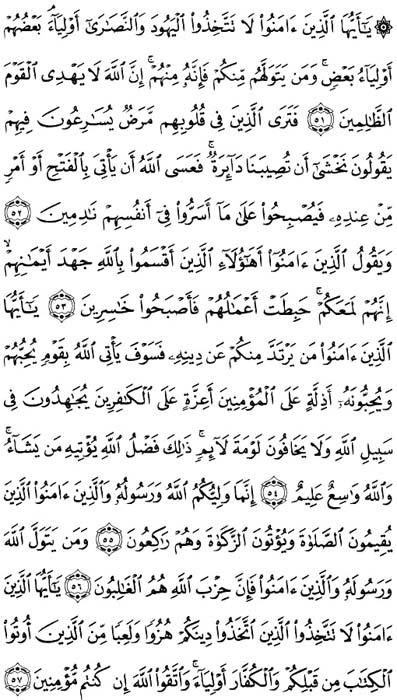 ۞ يَـٰٓأَيُّهَا ٱلَّذِينَ ءَامَنُوا۟ لَا تَتَّخِذُوا۟ ٱلْيَهُودَ وَٱلنَّصَـٰرَىٰٓ أَوْلِيَآءَ ۘ بَعْضُهُمْ
أَوْلِيَآءُ بَعْضٍ ۚ وَمَن يَتَوَلَّهُم مِّنكُمْ فَإِنَّهُۥ مِنْهُمْ ۗ إِنَّ ٱللَّهَ لَا يَهْدِى ٱلْقَوْمَ
ٱلظَّـٰلِمِينَ ٥١ فَتَرَى ٱلَّذِينَ فِى قُلُوبِهِم مَّرَضٌ يُسَـٰرِعُونَ فِيهِمْ
يَقُولُونَ نَخْشَىٰٓ أَن تُصِيبَنَا دَآئِرَةٌ ۚ فَعَسَى ٱللَّهُ أَن يَأْتِىَ بِٱلْفَتْحِ أَوْ أَمْرٍ
مِّنْ عِندِهِۦ فَيُصْبِحُوا۟ عَلَىٰ مَآ أَسَرُّوا۟ فِىٓ أَنفُسِهِمْ نَـٰدِمِينَ ٥٢
وَيَقُولُ ٱلَّذِينَ ءَامَنُوٓا۟ أَهَـٰٓؤُلَآءِ ٱلَّذِينَ أَقْسَمُوا۟ بِٱللَّهِ جَهْدَ أَيْمَـٰنِهِمْ ۙ
إِنَّهُمْ لَمَعَكُمْ ۚ حَبِطَتْ أَعْمَـٰلُهُمْ فَأَصْبَحُوا۟ خَـٰسِرِينَ ٥٣ يَـٰٓأَيُّهَا
ٱلَّذِينَ ءَامَنُوا۟ مَن يَرْتَدَّ مِنكُمْ عَن دِينِهِۦ فَسَوْفَ يَأْتِى ٱللَّهُ بِقَوْمٍ يُحِبُّهُمْ
وَيُحِبُّونَهُۥٓ أَذِلَّةٍ عَلَى ٱلْمُؤْمِنِينَ أَعِزَّةٍ عَلَى ٱلْكَـٰفِرِينَ يُجَـٰهِدُونَ فِى
سَبِيلِ ٱللَّهِ وَلَا يَخَافُونَ لَوْمَةَ لَآئِمٍ ۚ ذَٰلِكَ فَضْلُ ٱللَّهِ يُؤْتِيهِ مَن يَشَآءُ ۚ
وَٱللَّهُ وَٰسِعٌ عَلِيمٌ ٥٤ إِنَّمَا وَلِيُّكُمُ ٱللَّهُ وَرَسُولُهُۥ وَٱلَّذِينَ ءَامَنُوا۟ ٱلَّذِينَ
يُقِيمُونَ ٱلصَّلَوٰةَ وَيُؤْتُونَ ٱلزَّكَوٰةَ وَهُمْ رَٰكِعُونَ ٥٥ وَمَن يَتَوَلَّ ٱللَّهَ
وَرَسُولَهُۥ وَٱلَّذِينَ ءَامَنُوا۟ فَإِنَّ حِزْبَ ٱللَّهِ هُمُ ٱلْغَـٰلِبُونَ ٥٦ يَـٰٓأَيُّهَا ٱلَّذِينَ
ءَامَنُوا۟ لَا تَتَّخِذُوا۟ ٱلَّذِينَ ٱتَّخَذُوا۟ دِينَكُمْ هُزُوًا وَلَعِبًا مِّنَ ٱلَّذِينَ أُوتُوا۟
ٱلْكِتَـٰبَ مِن قَبْلِكُمْ وَٱلْكُفَّارَ أَوْلِيَآءَ ۚ وَٱتَّقُوا۟ ٱللَّهَ إِن كُنتُم مُّؤْمِنِينَ ٥٧